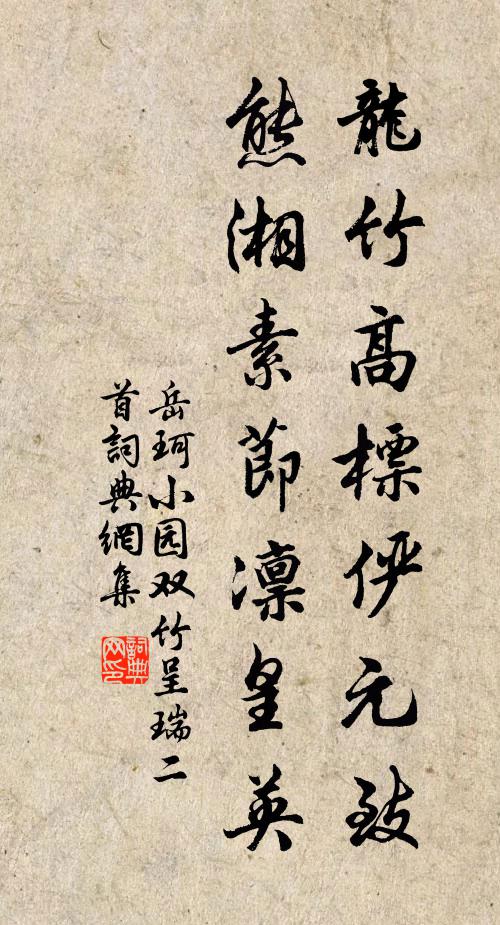 龍竹高標俨元致
熊湘素節凛皇英
岳珂小园双竹呈瑞二
首詞典網集
詞典网印